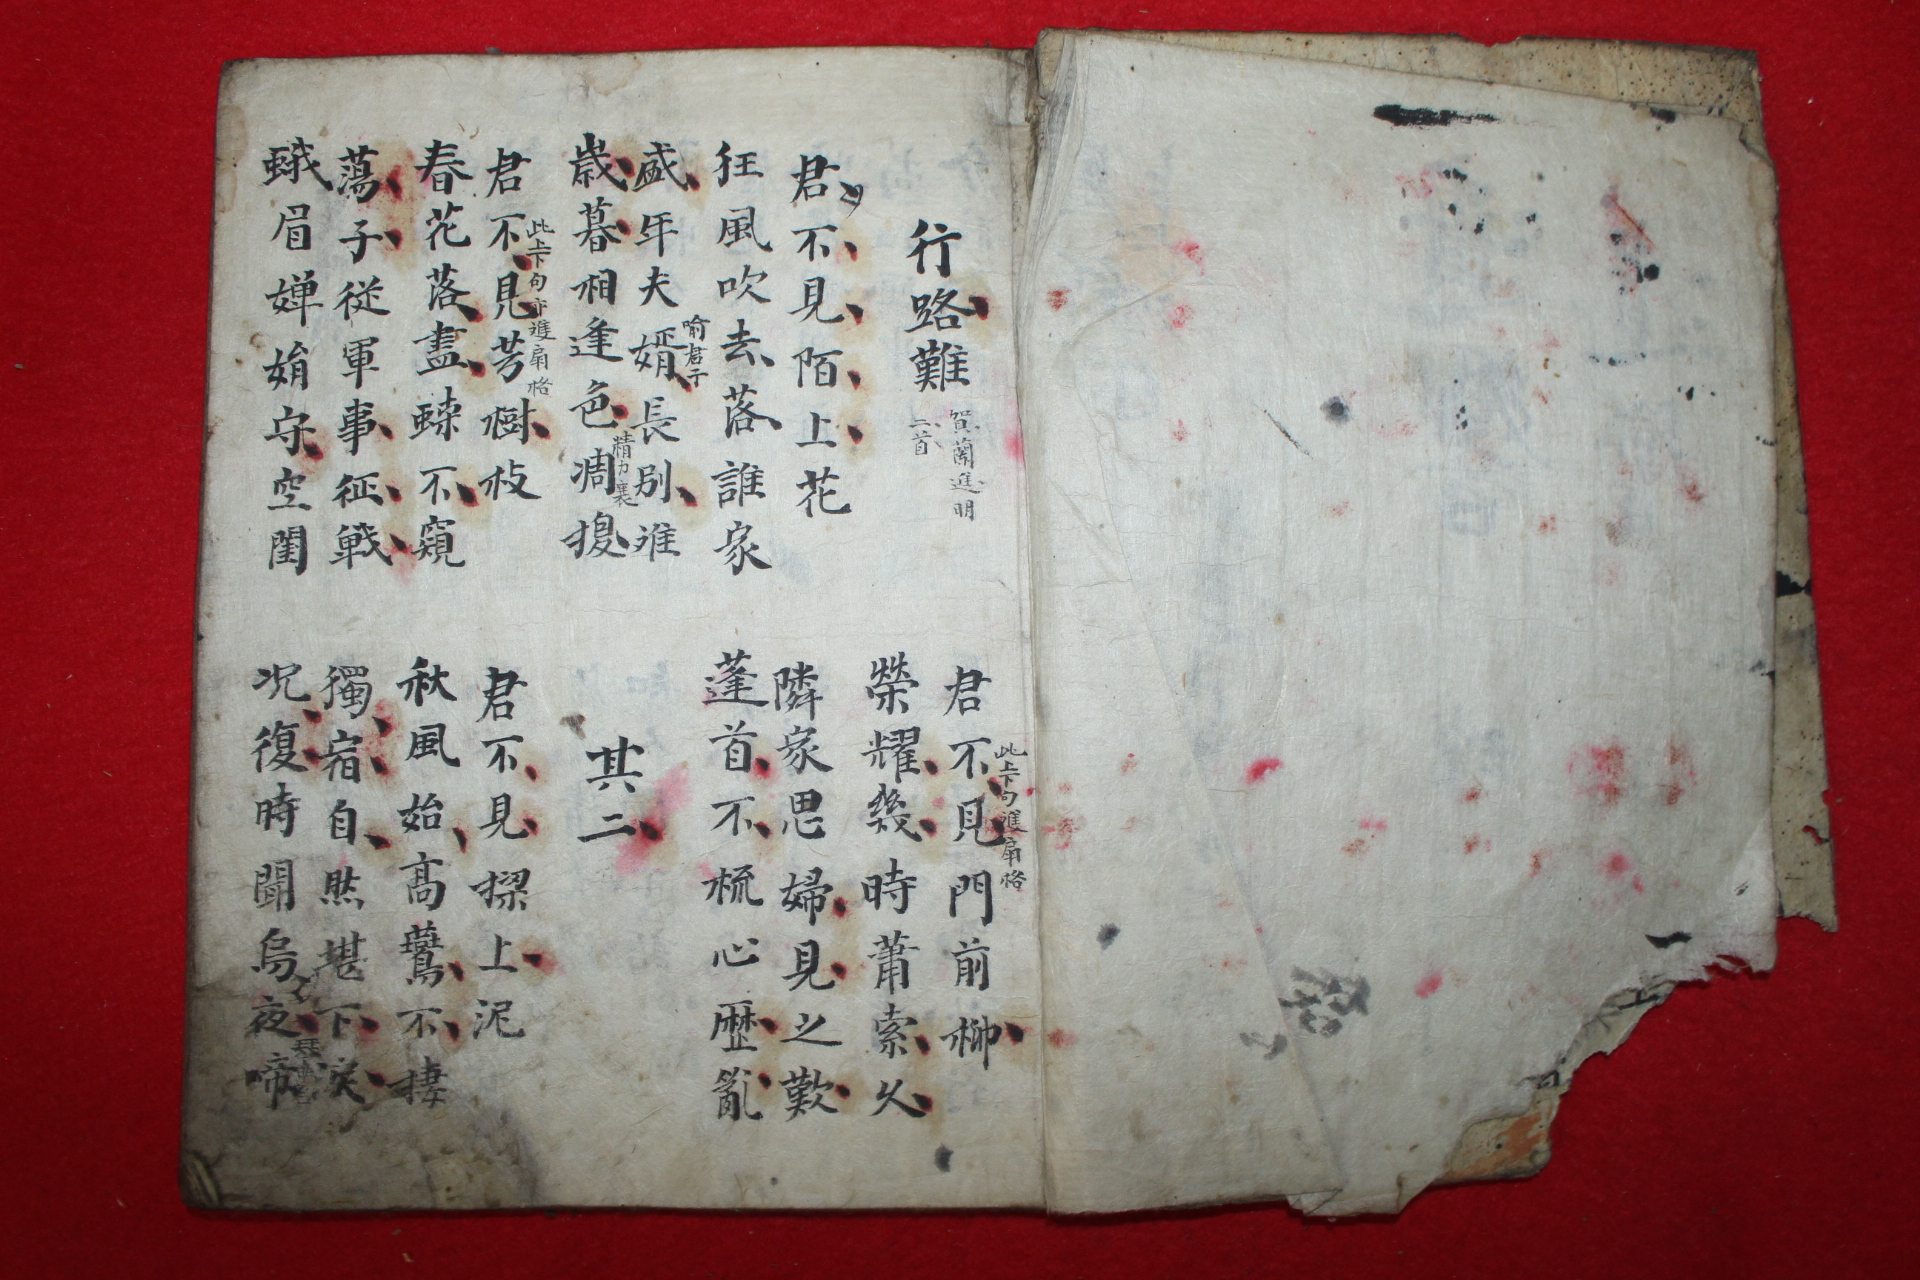 行路難
賀蘭進明
二首
君不見門前柳
此上下句進扇格
榮耀幾時蕭索久
君不見陌上花
狂風吹去落誰家
隣家思婦見之歎
蓬首不梳心歷亂
盛年夫婿長別離
喻君子
歲暮相逢色凋換
精力衰
其二
君不見芳樹枝
此上下句亦進扇格
春花落盡蜂不窺
君不見樑上泥
秋風始高鷰不棲
蕩子從軍事征戰
蛾眉嬋娟守空閨
獨宿自然堪下淚
況復時聞烏夜啼